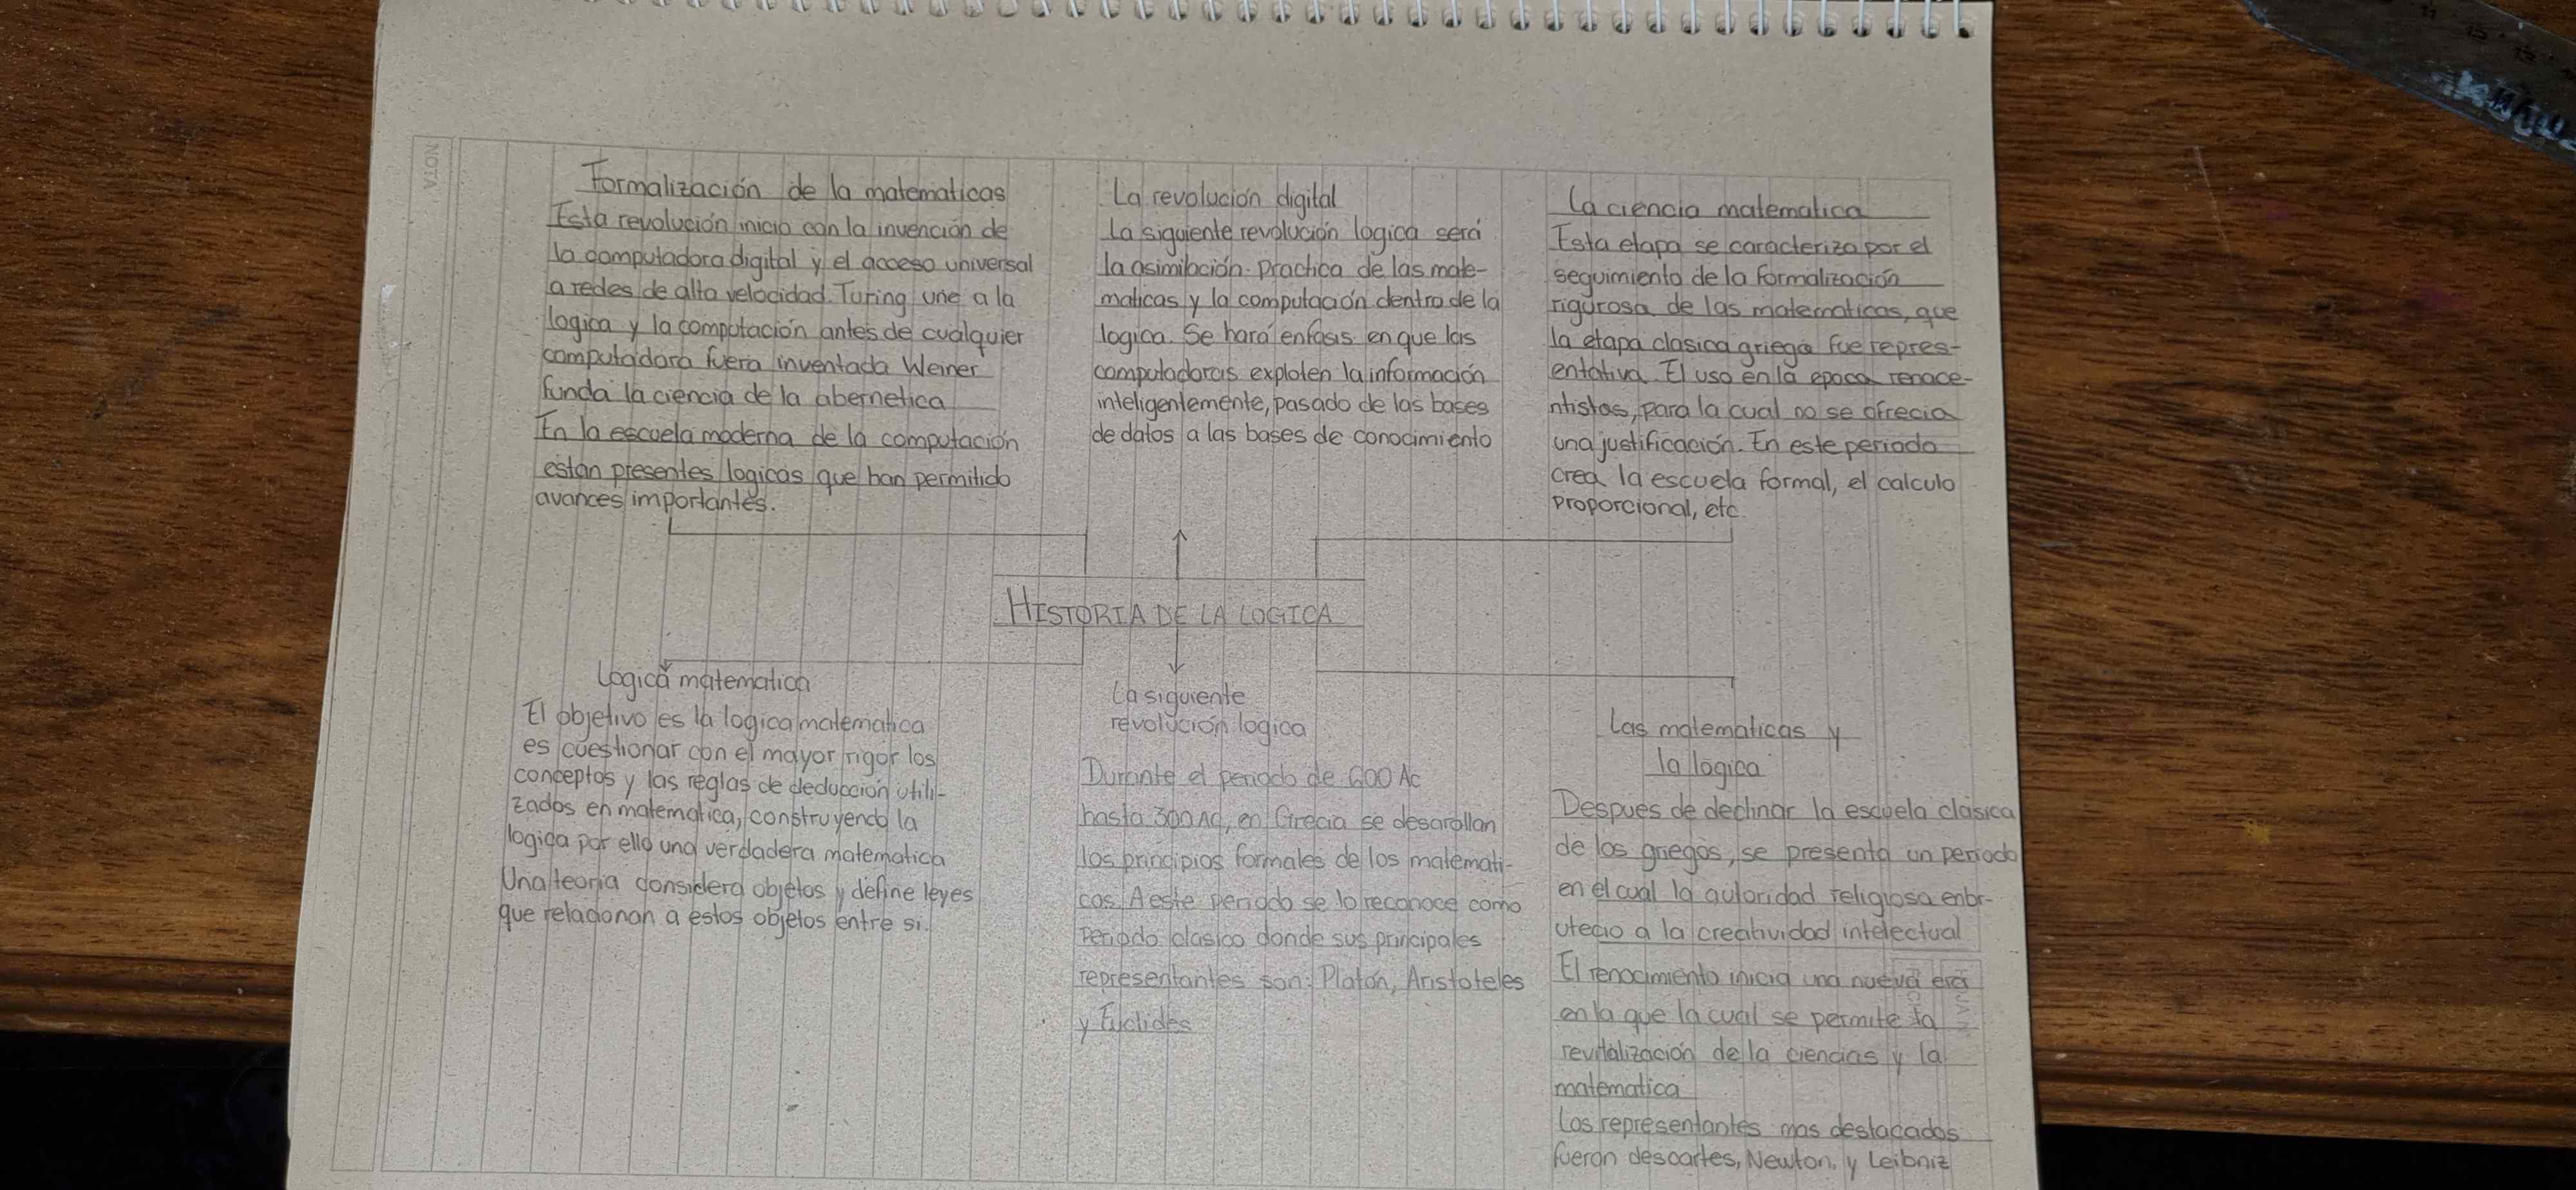 NOTA
Formalización de la matematicas
Esta revolución inicio con la invención de
la computadora digital y el acceso universal
a redes de alta velocidad. Turing une a la
logica y la computación antes de cualquier
computadora fuera inventada Weiner
funda la ciencia de la abernetica
En la escuela moderna de la computación
estan presentes logicas que han permitido
avances importantes.
La revolución digital
La siguiente revolución logica será
la asimilación practica de las mate-
maticas y la computación dentro de la
logica. Se hará enfasis en que las
computadoras exploten la información
inteligentemente, pasado de las bases
de datos a las bases de conocimiento
La ciencia matematica
Esta etapa se caracteriza por el
seguimiento de la formalización
rigurosa de las matematicas, que
la etapa clasica griega fue repres-
entativa. El uso en la epoca renace-
ntistas, para la cual no se ofrecia
una justificación. En este periodo
crea la escuela formal, el calculo
proporcional, etc.
HISTORIA DE LA LOGICA
Logica matematica
El objetivo es la logica matematica
es cuestionar con el mayor rigor los
conceptos y las reglas de deducción utili-
zados en matematica, construyendo la
logica por ello una verdadera matematica
Una teoria considera objetos y define leyes
que relacionan a estos objetos entre si.
La siguiente
revolución logica
Durante el periodo de 600 Ac
hasta 300 Ac, en Grecia se desarollan
los principios formales de los matemati-
cas. A este periodo se lo reconoce como
Periodo clasico donde sus principales
representantes son: Platón, Aristoteles
y Euclides
Las matematicas y
la lógica
Despues de declinar la escuela clásica
de los griegos, se presenta un periodo
en el cual la autoridad religiosa enbr-
utecio a la creatividad intelectual
El renacimiento inicia una nueva era
en la que la cual se permite la
revitalización de la ciencias y la
matematica
Los representantes mas destacados
fueron descartes, Newton, y Leibniz